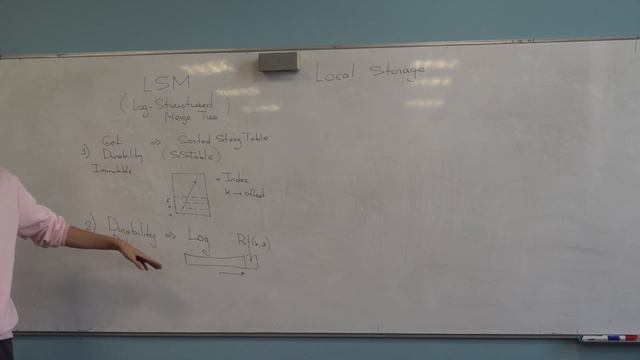 LSM
Local Storage
(Log-Structured)
Merge Tree
1) Get ⇒ Sorted String Table
Durability (SSTable)
Immutable
+ Index
k → offset
2) Durability ⇒ Log